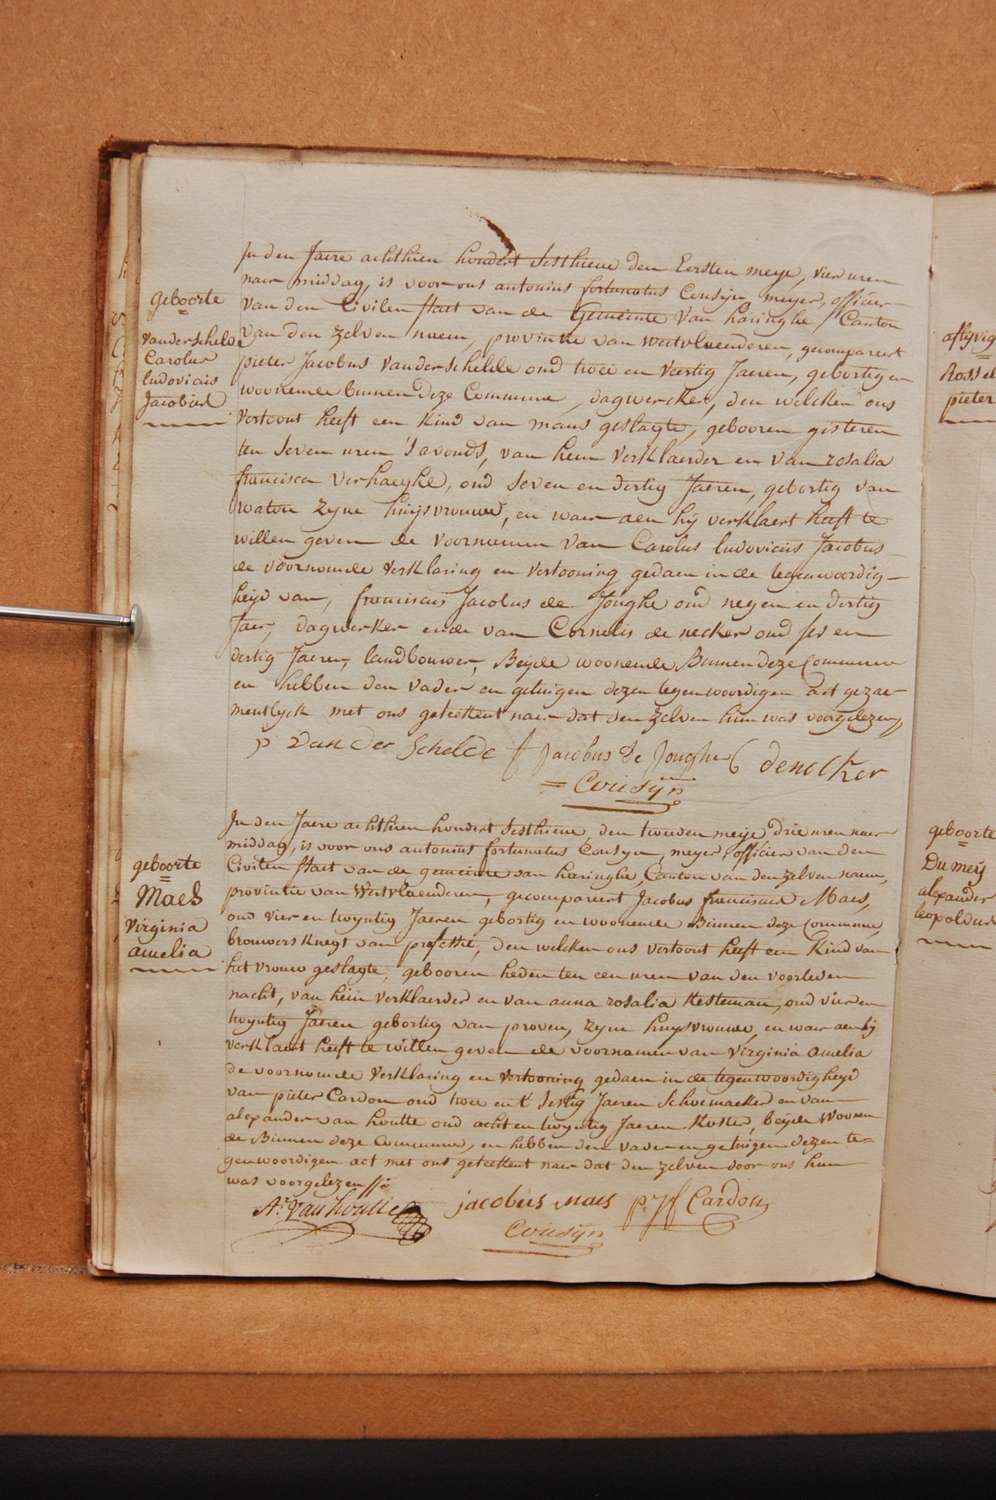 geboorte
vanderschelde
Carolus
ludovicus
Jacobus
In den Jaere achthien hondert sesthiene den Eersten meye, vier uren
naer middag, is voor ons antonius fortunatus Cousyn, meyer, officier
van den Civilen staet van de Gemeente van haringhe, Canton
van den zelven naem, provintie van westvlaenderen, gecompareert
pieter Jacobus vanderschelde oud twee en veertig Jaeren, gebortig en
woonende binnen deze Commune, dagwerker, den welcken ons
vertoont heeft een kind van mans geslagte, gebooren gisteren
ten seven uren 's avonds, van hem verklaerder en van rosalia
francisca verhaeghe, oud seven en dertig Jaeren, gebortig van
watou zyne huysvrouwe, en waer aen hy verklaert heeft te
willen geven de voornamen van Carolus ludovicus Jacobus
de voornoemde verklaring en vertooning gedaen in de tegenwoordig-
heyd van, franciscus Jacobus de Jonghe oud negen en dertig
Jaer, dagwerker ende van Cornelis de necker oud ses en
dertig Jaeren, landbouwer, Beyde woonende Binnen deze Commune
en hebben den vader en getuigen dezen tegenwoordigen act gezae-
mentlyck met ons geteekent naer dat den zelven hun was voorgelezen
p van der schelde f Jacobus de Jonghe C denecker
= Cousijn
geboorte
Maes
Virginia
amelia
In den Jaere achthien hondert sesthiene, den tweeden meije drie uren naer
middag, is voor ons antonius fortunatus Cousyn, meyer, officier van den
Civilen staet van de gemeente van haringhe, Canton van den zelven naem,
provintie van Westvlaenderen, gecompareert Jacobus franciscus Maes,
oud vier en twyntig Jaeren gebortig en woonende Binnen deze Commune
brouwers knegt van professie, den welcken ons vertoont heeft een kind van
het vrouw geslagte, gebooren heden ten een uren van den voorleden
nacht, van hem verklaerder en van anna rosalia kesteman, oud vier en
twyntig Jaeren gebortig van proven, zyne huysvrouwe, en waer aen hy
verklaert heeft te willen geven de voornamen van Virginia amelia
de voornoemde verklaring en vertooning gedaen in de tegenwoordigheyd
van pieter Cardon oud twee en t' sestig Jaeren schoemaeker en van
alexander van houtte oud acht en twyntig Jaeren koster, beyde woonen
de Binnen deze Commune, en hebben den vader en getuigen dezen te=
genwoordigen act met ons geteekent naer dat den zelven door ons hun
was voorgelezen
Ar. Van Houtte jacobus maes p. Cardon
Cousijn
aflyvig
Rossel
pieter
geboorte
Du meij
alexander
leopoldus